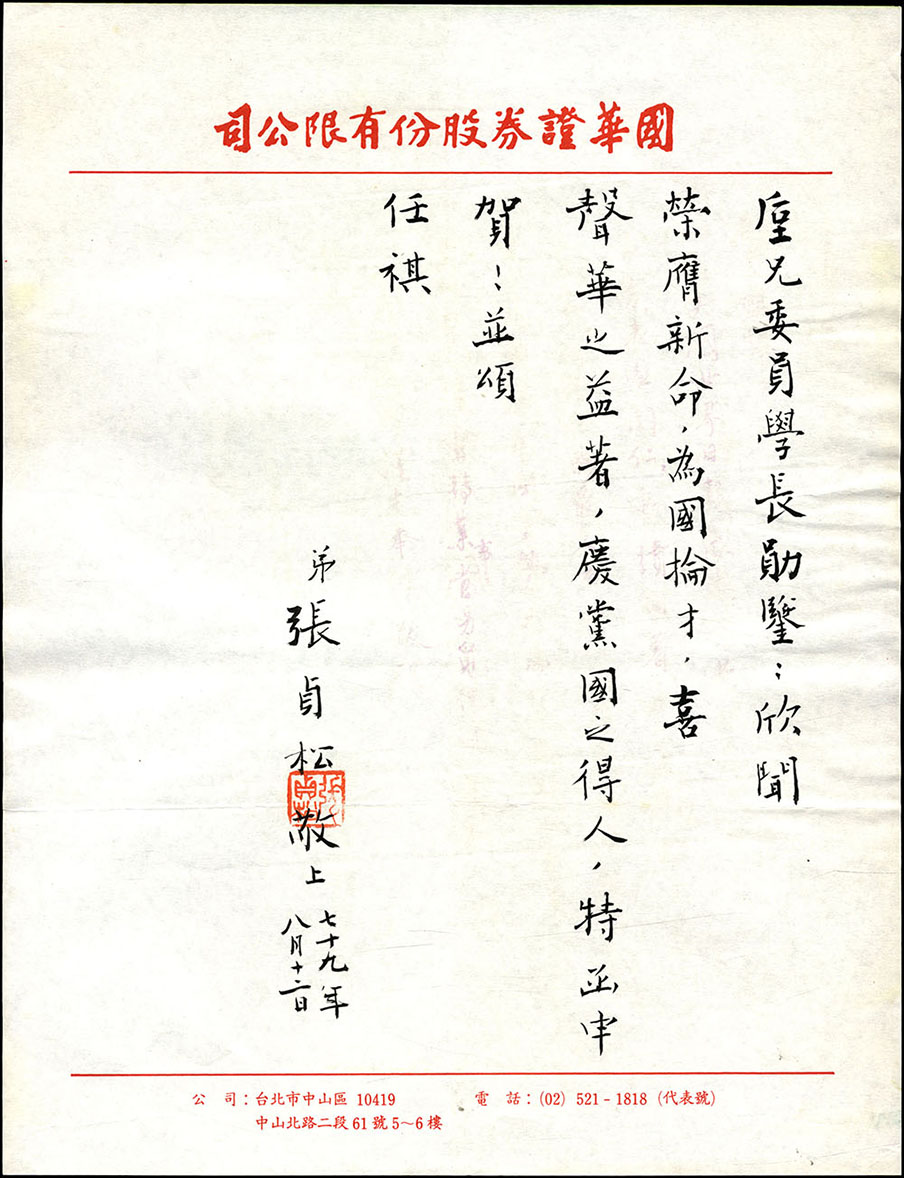 國華證券股份有限公司
垕兄委員學長勛鑒：欣聞
榮膺新命，為國掄才，喜
聲華之益著，慶黨國之得人，特函申
賀：並頌
任祺
弟張貞松敬上
七十九年
八月十二日
公　司：台北市中山區 10419
中山北路二段61號5～6樓
電　話：(02) 521-1818 (代表號)